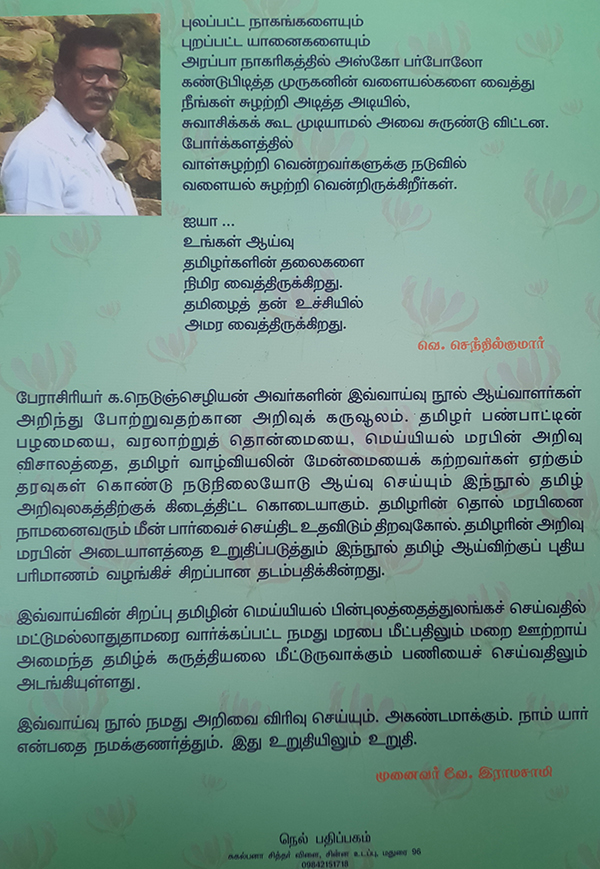 புலப்பட்ட நாகங்களையும்
புறப்பட்ட யானைகளையும்
அரப்பா நாகரிகத்தில் அஸ்கோ பர்போலோ
கண்டுபிடித்த முருகனின் வளையல்களை வைத்து
நீங்கள் சுழற்றி அடித்த அடியில்,
சுவாசிக்கக் கூட முடியாமல் அவை சுருண்டு விட்டன.
போர்க்களத்தில்
வாள்சுழற்றி வென்றவர்களுக்கு நடுவில்
வளையல் சுழற்றி வென்றிருக்கிறீர்கள்.
ஐயா ...
உங்கள் ஆய்வு
தமிழர்களின் தலைகளை
நிமிர வைத்திருக்கிறது.
தமிழைத் தன் உச்சியில்
அமர வைத்திருக்கிறது.
வெ. செந்தில்குமார்
பேராசிரியர் க.நெடுஞ்செழியன் அவர்களின் இவ்வாய்வு நூல் ஆய்வாளர்கள்
அறிந்து போற்றுவதற்கான அறிவுக் கருவூலம். தமிழர் பண்பாட்டின்
பழமையை, வரலாற்றுத் தொன்மையை, மெய்யியல் மரபின் அறிவு
விசாலத்தை, தமிழர் வாழ்வியலின் மேன்மையைக் கற்றவர்கள் ஏற்கும்
தரவுகள் கொண்டு நடுநிலையோடு ஆய்வு செய்யும் இந்நூல் தமிழ்
அறிவுலகத்திற்குக் கிடைத்திட்ட கொடையாகும். தமிழரின் தொல் மரபினை
நாமனைவரும் மீன் பார்வைச் செய்திட உதவிடும் திறவுகோல். தமிழரின் அறிவு
மரபின் அடையாளத்தை உறுதிப்படுத்தும் இந்நூல் தமிழ் ஆய்விற்குப் புதிய
பரிமாணம் வழங்கிச் சிறப்பான தடம்பதிக்கின்றது.
இவ்வாய்வின் சிறப்பு தமிழின் மெய்யியல் பின்புலத்தைத்துலங்கச் செய்வதில்
மட்டுமல்லாதுதாமரை வார்க்கப்பட்ட நமது மரபை மீட்பதிலும் மறை ஊற்றாய்
அமைந்த தமிழ்க் கருத்தியலை மீட்டுருவாக்கும் பணியைச் செய்வதிலும்
அடங்கியுள்ளது.
இவ்வாய்வு நூல் நமது அறிவை விரிவு செய்யும். அகண்டமாக்கும். நாம் யார்
என்பதை நமக்குணர்த்தும். இது உறுதியிலும் உறுதி.
முனைவர் வே. இராமசாமி
நெல் பதிப்பகம்
ககல்பனா சித்தர் விளை, சின்ன உடப்பு, மதுரை 96
09842151718